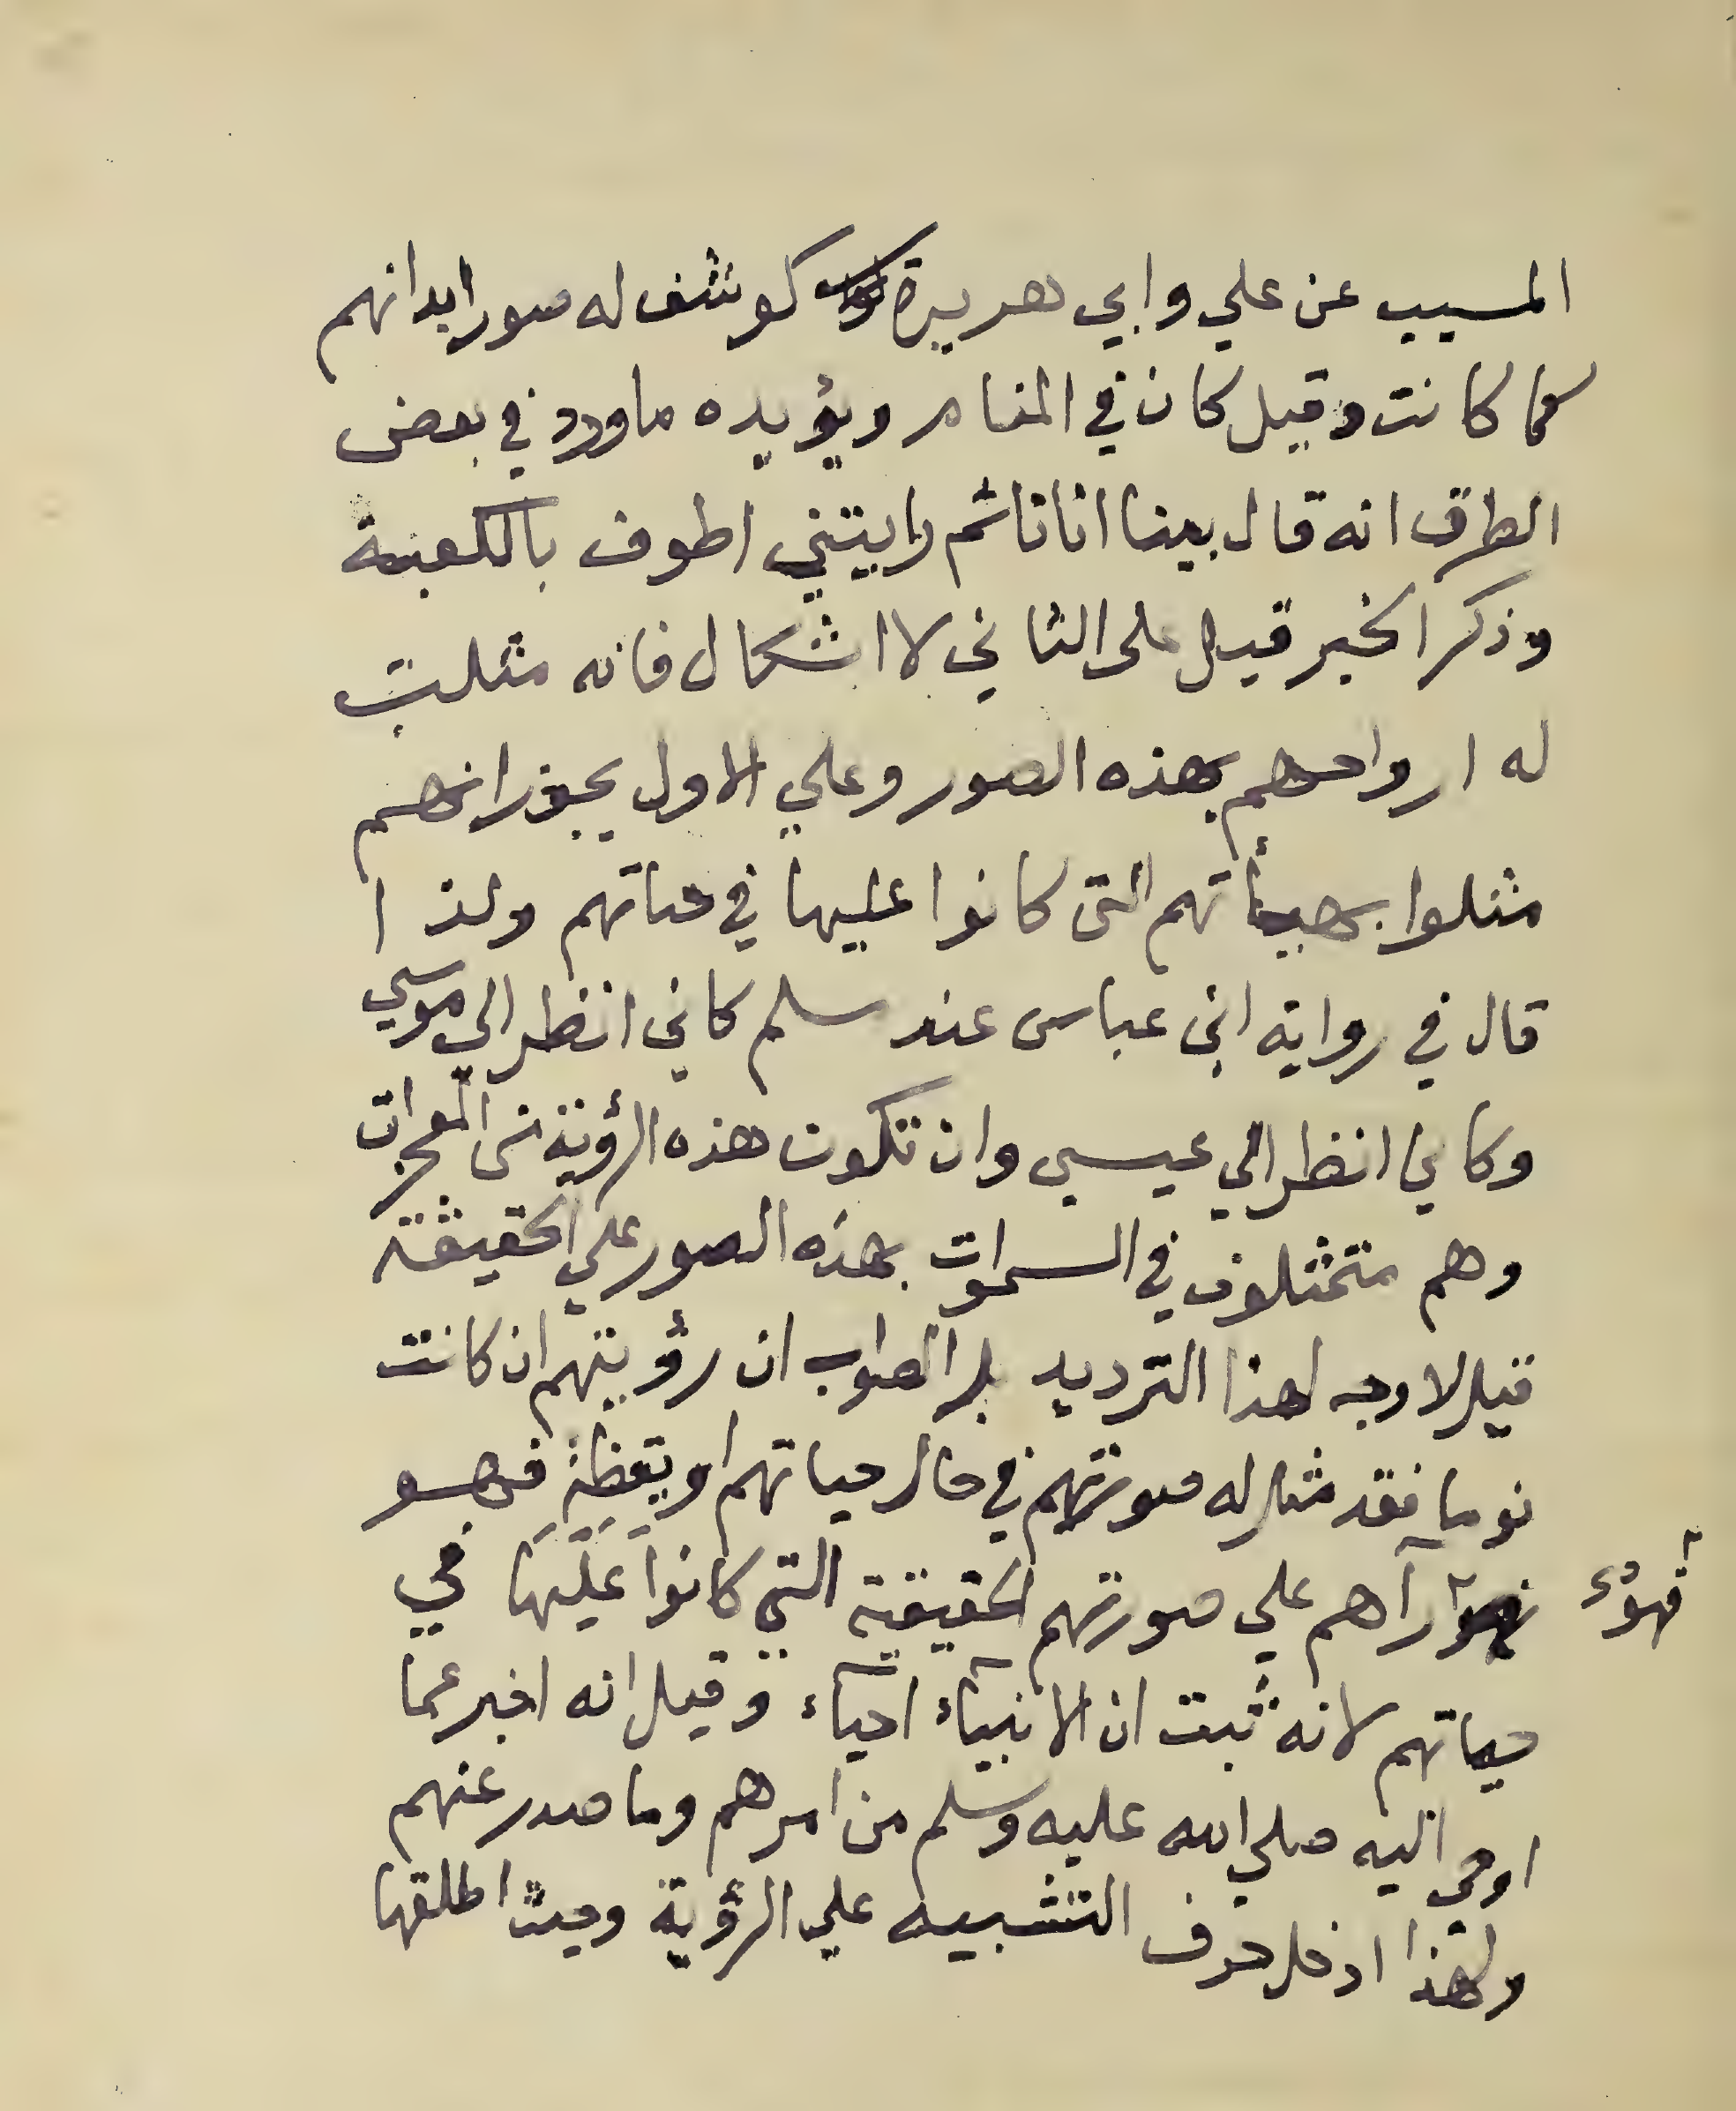 المسيب عن علي وابي هريرة كوشف له صور ابدانهم
كما كانت وقيل كان في المنام ويؤيده ما ورد في بعض
الطرق انه قال بينا انا نائم رايتني اطوف بالكعبة
وذكر الخبر قيل على الثاني لا اشكال فانه مثلت
له ارواحهم بهذه الصور وعلي الاول يجوز انهم
مثلوا بهيأتهم التي كانوا عليها في حياتهم ولذا
قال في رواية ابن عباس عند مسلم كاني انظر الي موسي
وكاني انظر الي عيسي وان تكون هذه الرؤية من المعجزات
وهم متمثلون في السموات بهذه الصور علي الحقيقة
قيل لا وجه لهذا الترديد بل الصواب ان رؤيتهم ان كانت
نوما فقد مثل له صورتهم في حال حياتهم او يقظة فهو
رآهم علي صورتهم الحقيقية التي كانوا عليها في
حياتهم لانه ثبت ان الانبيآء احيآء وقيل انه اخبر عما
اوحي اليه صلي الله عليه وسلم من امرهم وما صدر عنهم
ولهذا ادخل حرف التشبيه علي الرؤية وحيث اطلقها